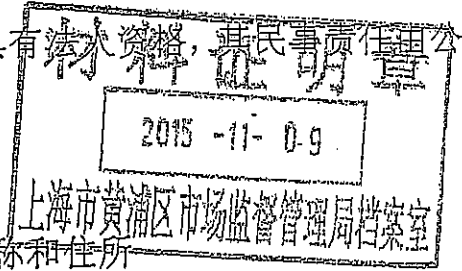 有法人资格，其民事责任由公
材料证明章
2015 -11- 0 9
上海市黄浦区市场监督管理局档案室
称和住所